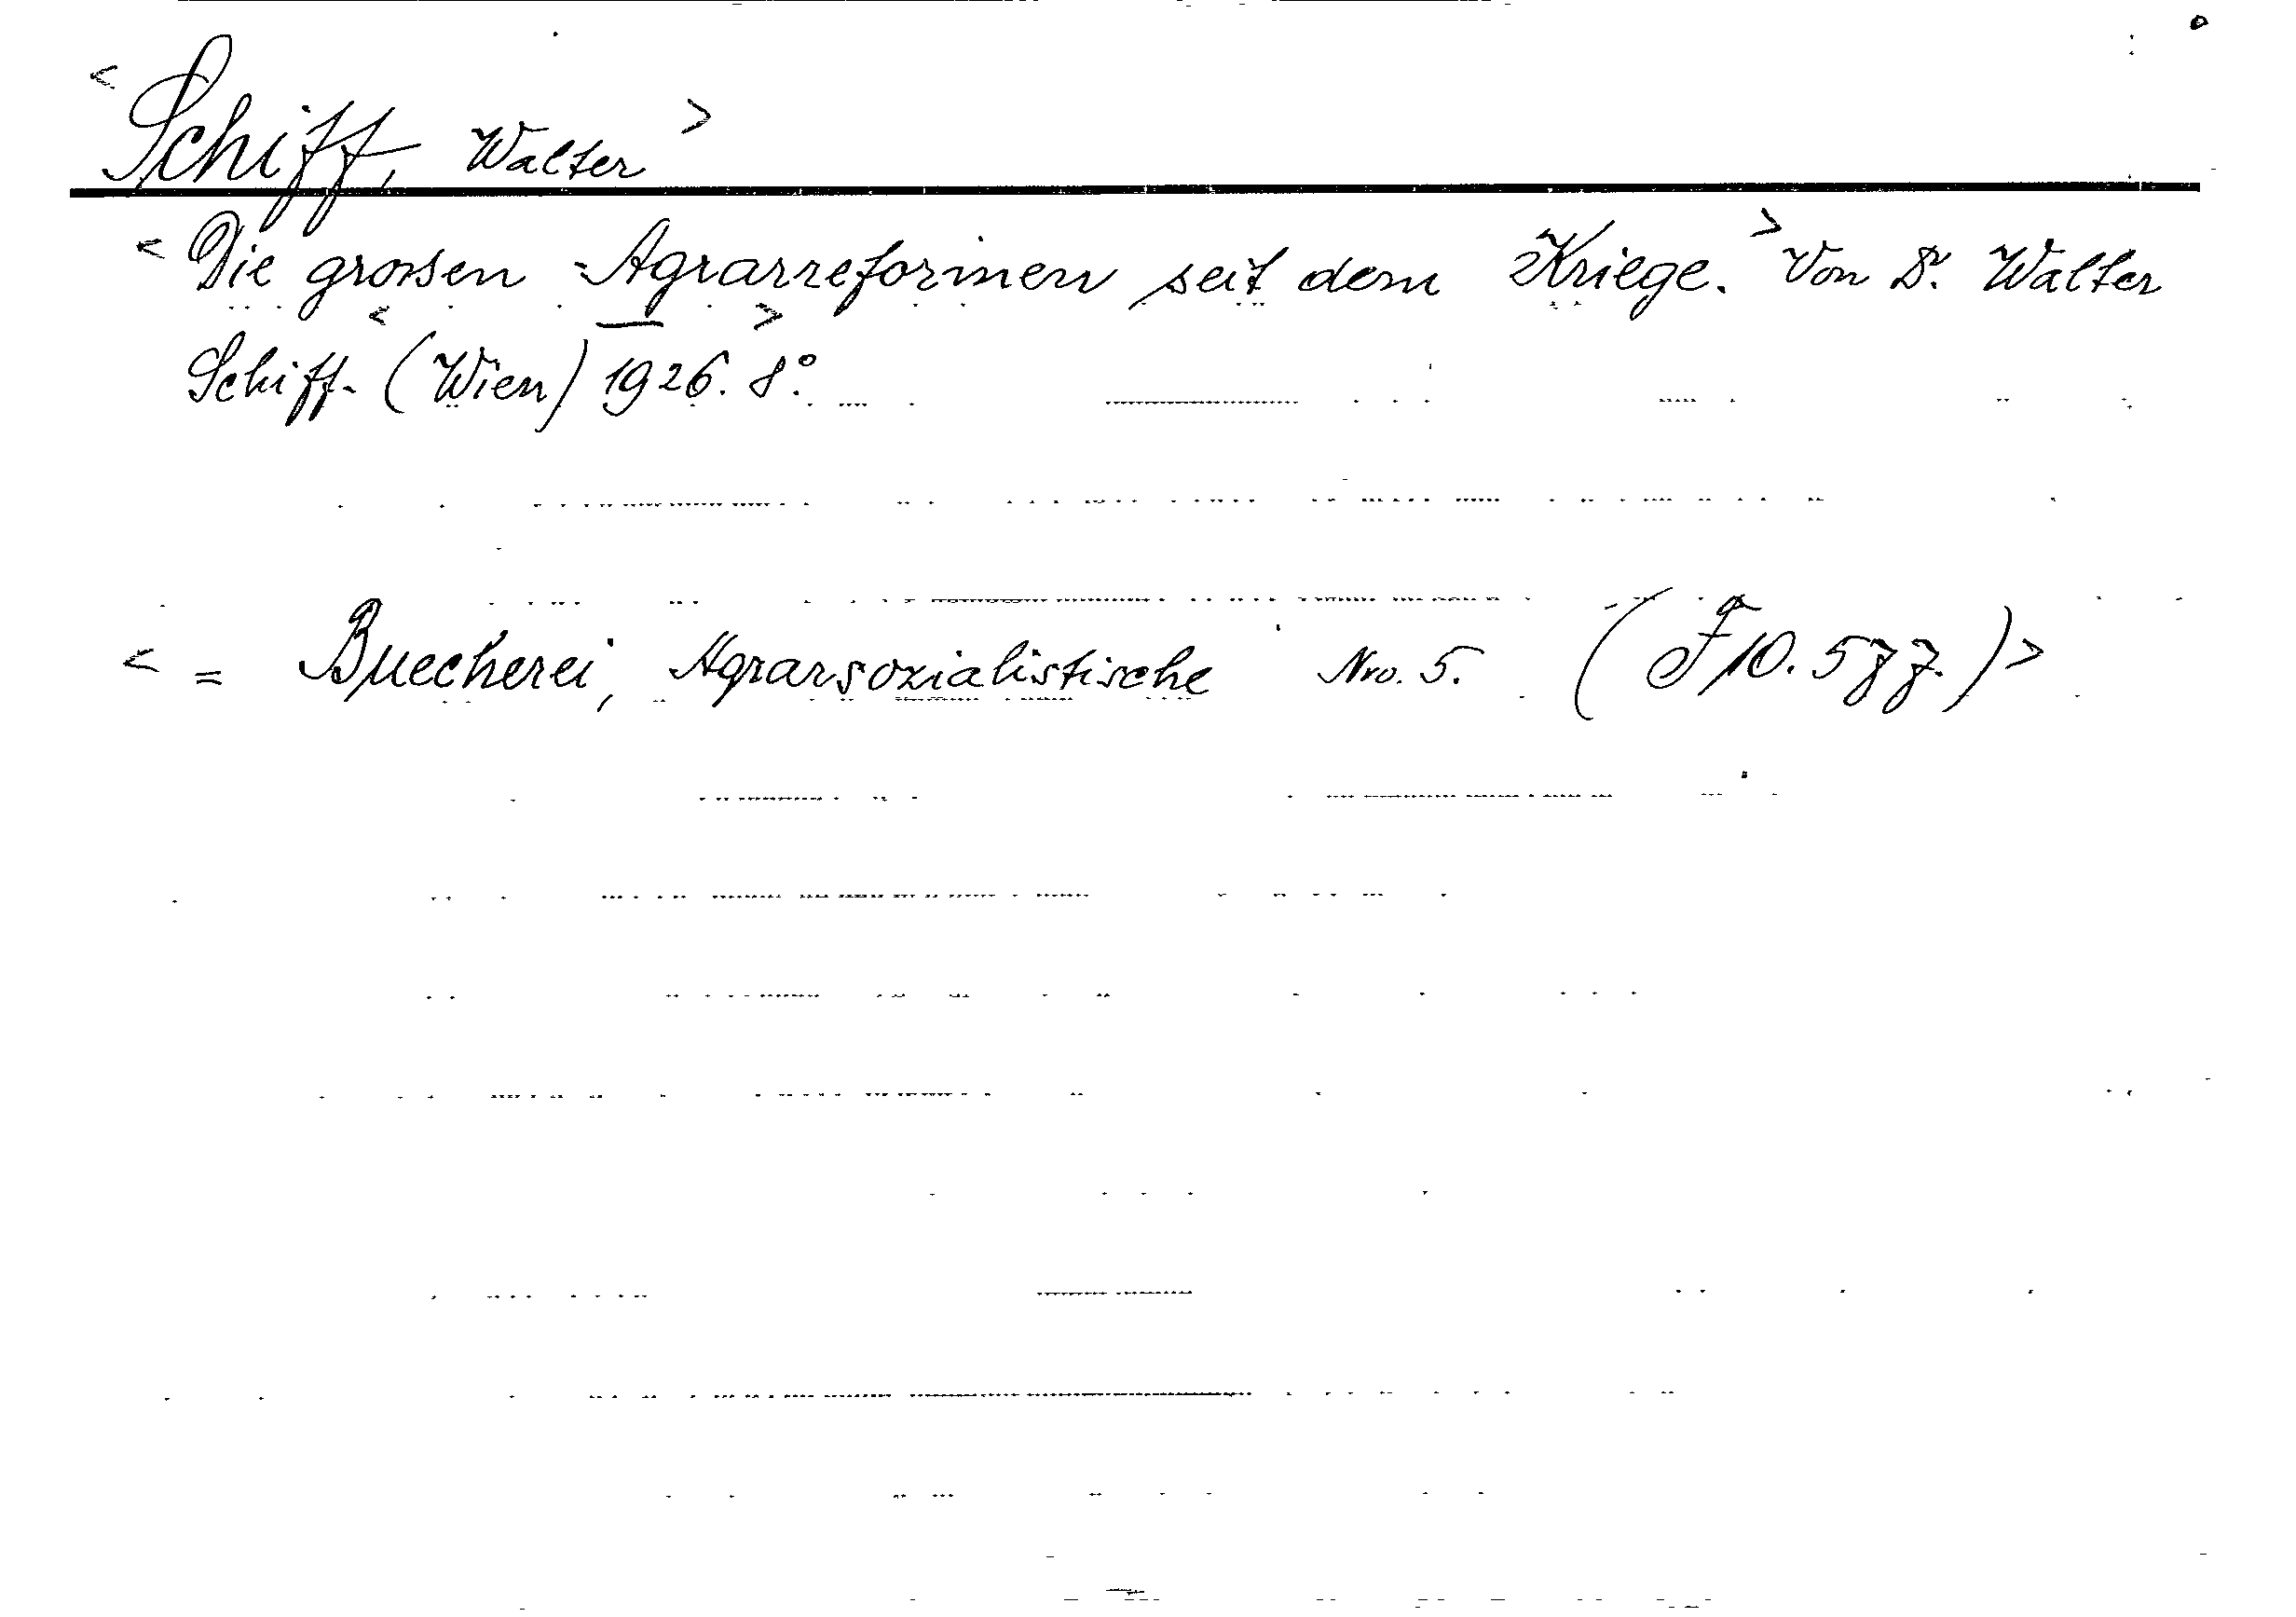 <Schiff, Walter>
<Die grossen Agrarreformen seit dem Kriege.> Von Dr. Walter
Schiff. <(Wien) 1926. 8°.>
<= Buecherei, Agrarsozialistische Nro. 5. (F 10.577.)>